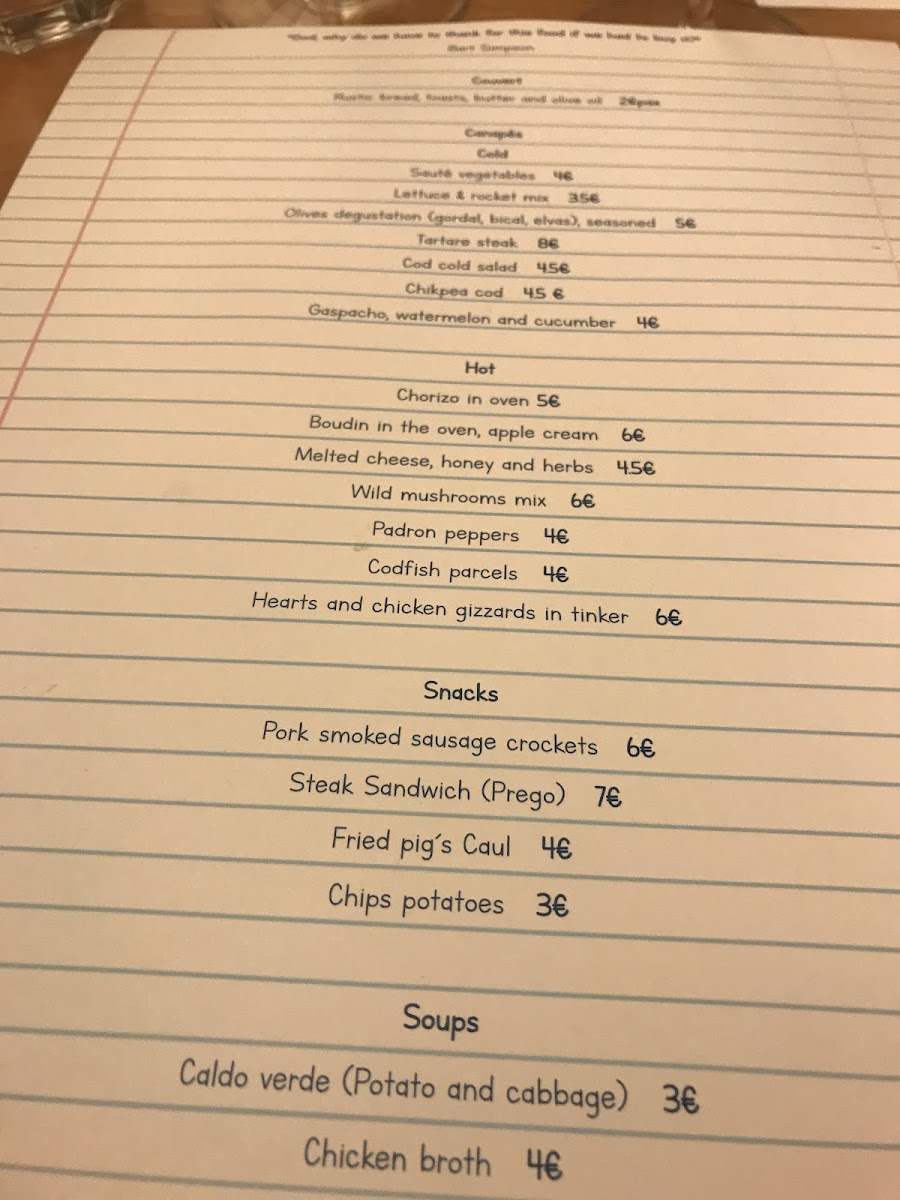 "God, why do we have to thank for the food if we had to buy it?"
Bart Simpson
Couvert
Rustic bread, toasts, butter and olive oil
Canapés
Cold
Sauté vegetables 4€
Lettuce & rocket mix 3.5€
Olives degustation (gordal, bical, elvas), seasoned 5€
Tartare steak 8€
Cod cold salad 4.5€
Chikpea cod 4.5 €
Gaspacho, watermelon and cucumber 4€
Hot
Chorizo in oven 5€
Boudin in the oven, apple cream 6€
Melted cheese, honey and herbs 4.5€
Wild mushrooms mix 6€
Padron peppers 4€
Codfish parcels 4€
Hearts and chicken gizzards in tinker 6€
Snacks
Pork smoked sausage crockets 6€
Steak Sandwich (Prego) 7€
Fried pig´s Caul 4€
Chips potatoes 3€
Soups
Caldo verde (Potato and cabbage) 3€
Chicken broth 4€